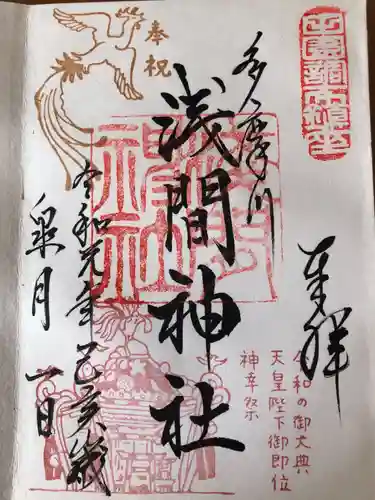 奉拝
多摩川
浅間神社
令和元年己亥歳
皐月一日
奉祝
浅間神社
令和の御大典
天皇陛下御即位
神幸祭